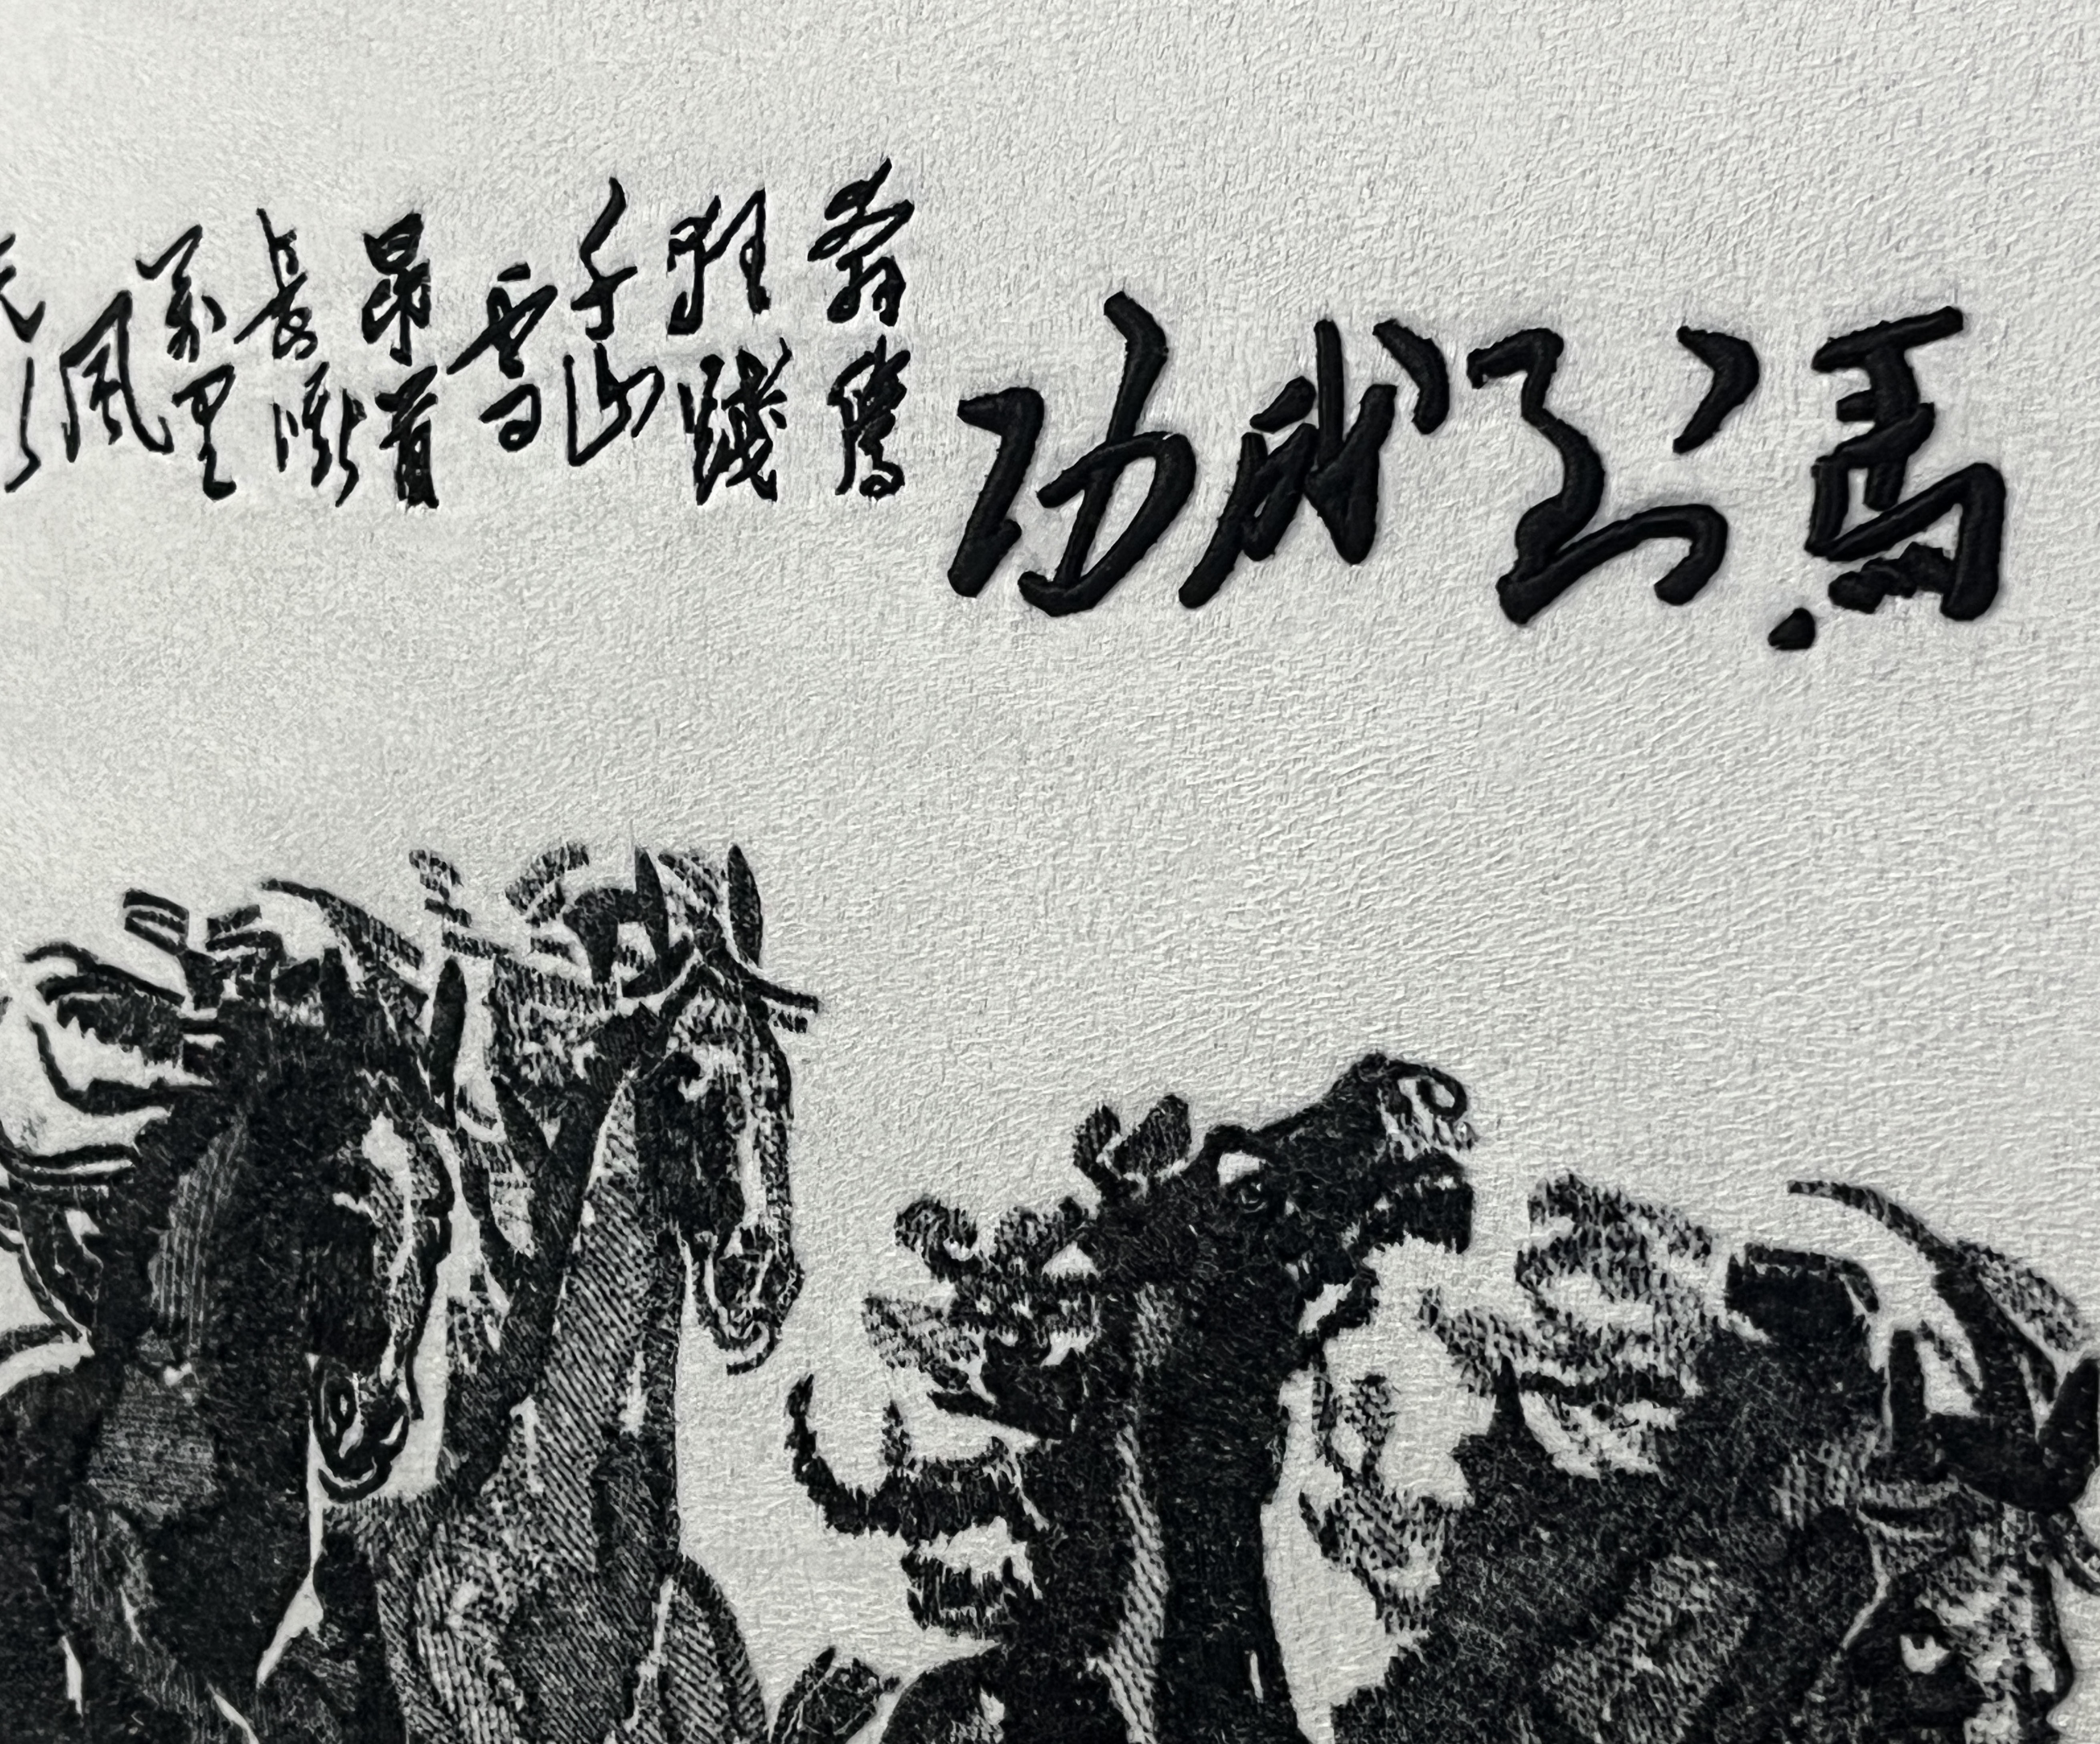 馬到成功
奔騰
狂踐
千山
雪
昂首
長嘶
萬里
風